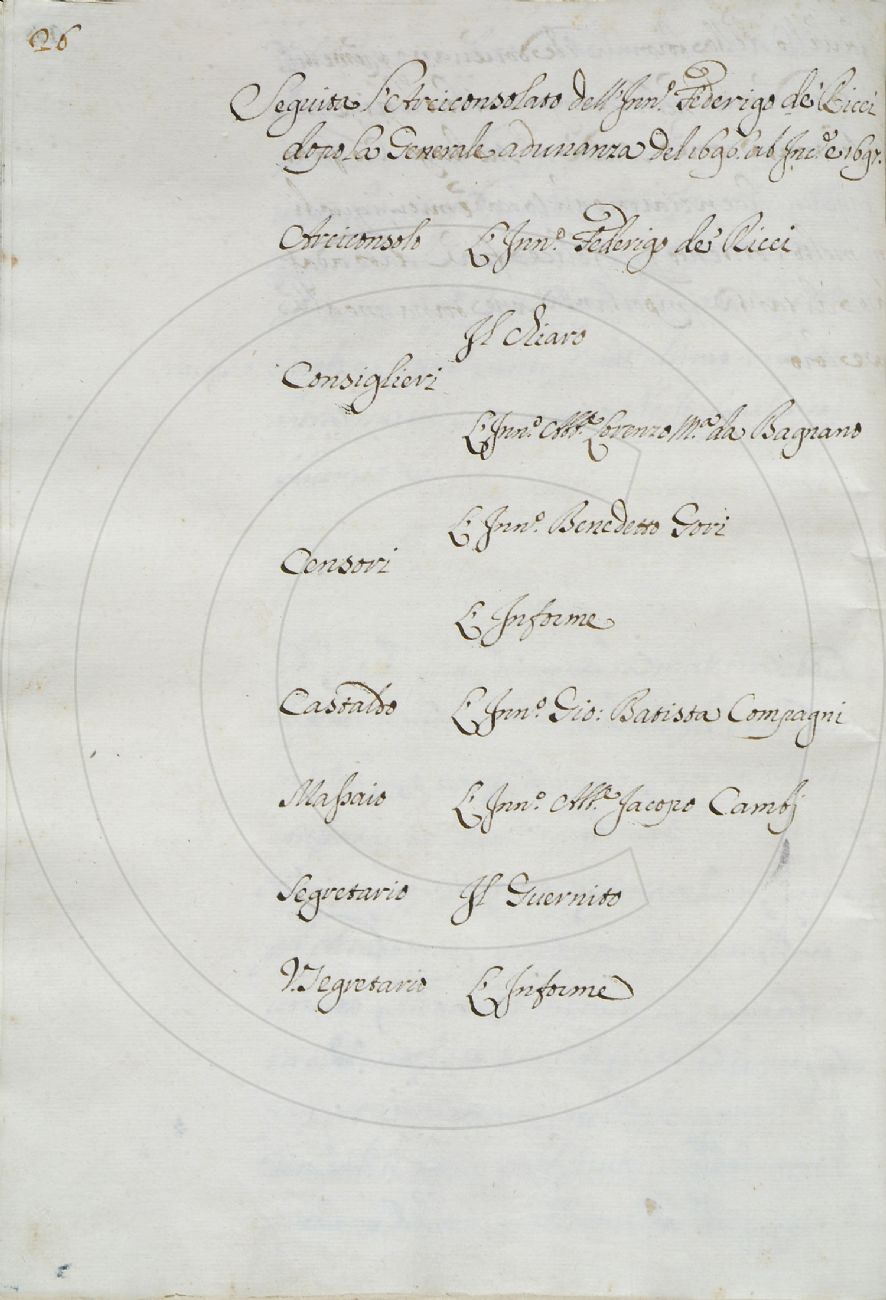 26
Seguita l'Arciconsolato dell'Inn.º Federigo de' Ricci
dopo la Generale adunanza del 1696. ab Inc.e 1697.
Arciconsolo L'Inn.º Federigo de' Ricci
Il Chiaro
Consiglieri
L'Inn.º Abb.e Lorenzo M.a da Bagnano
L'Inn.º Benedetto Gori
Censori
L'Informe
Castaldo L'Inn.º Gio: Batista Compagni
Massaio L'Inn.º Abb.e Jacopo Cambj
Segretario Il Guernito
V. Segretario L'Informe